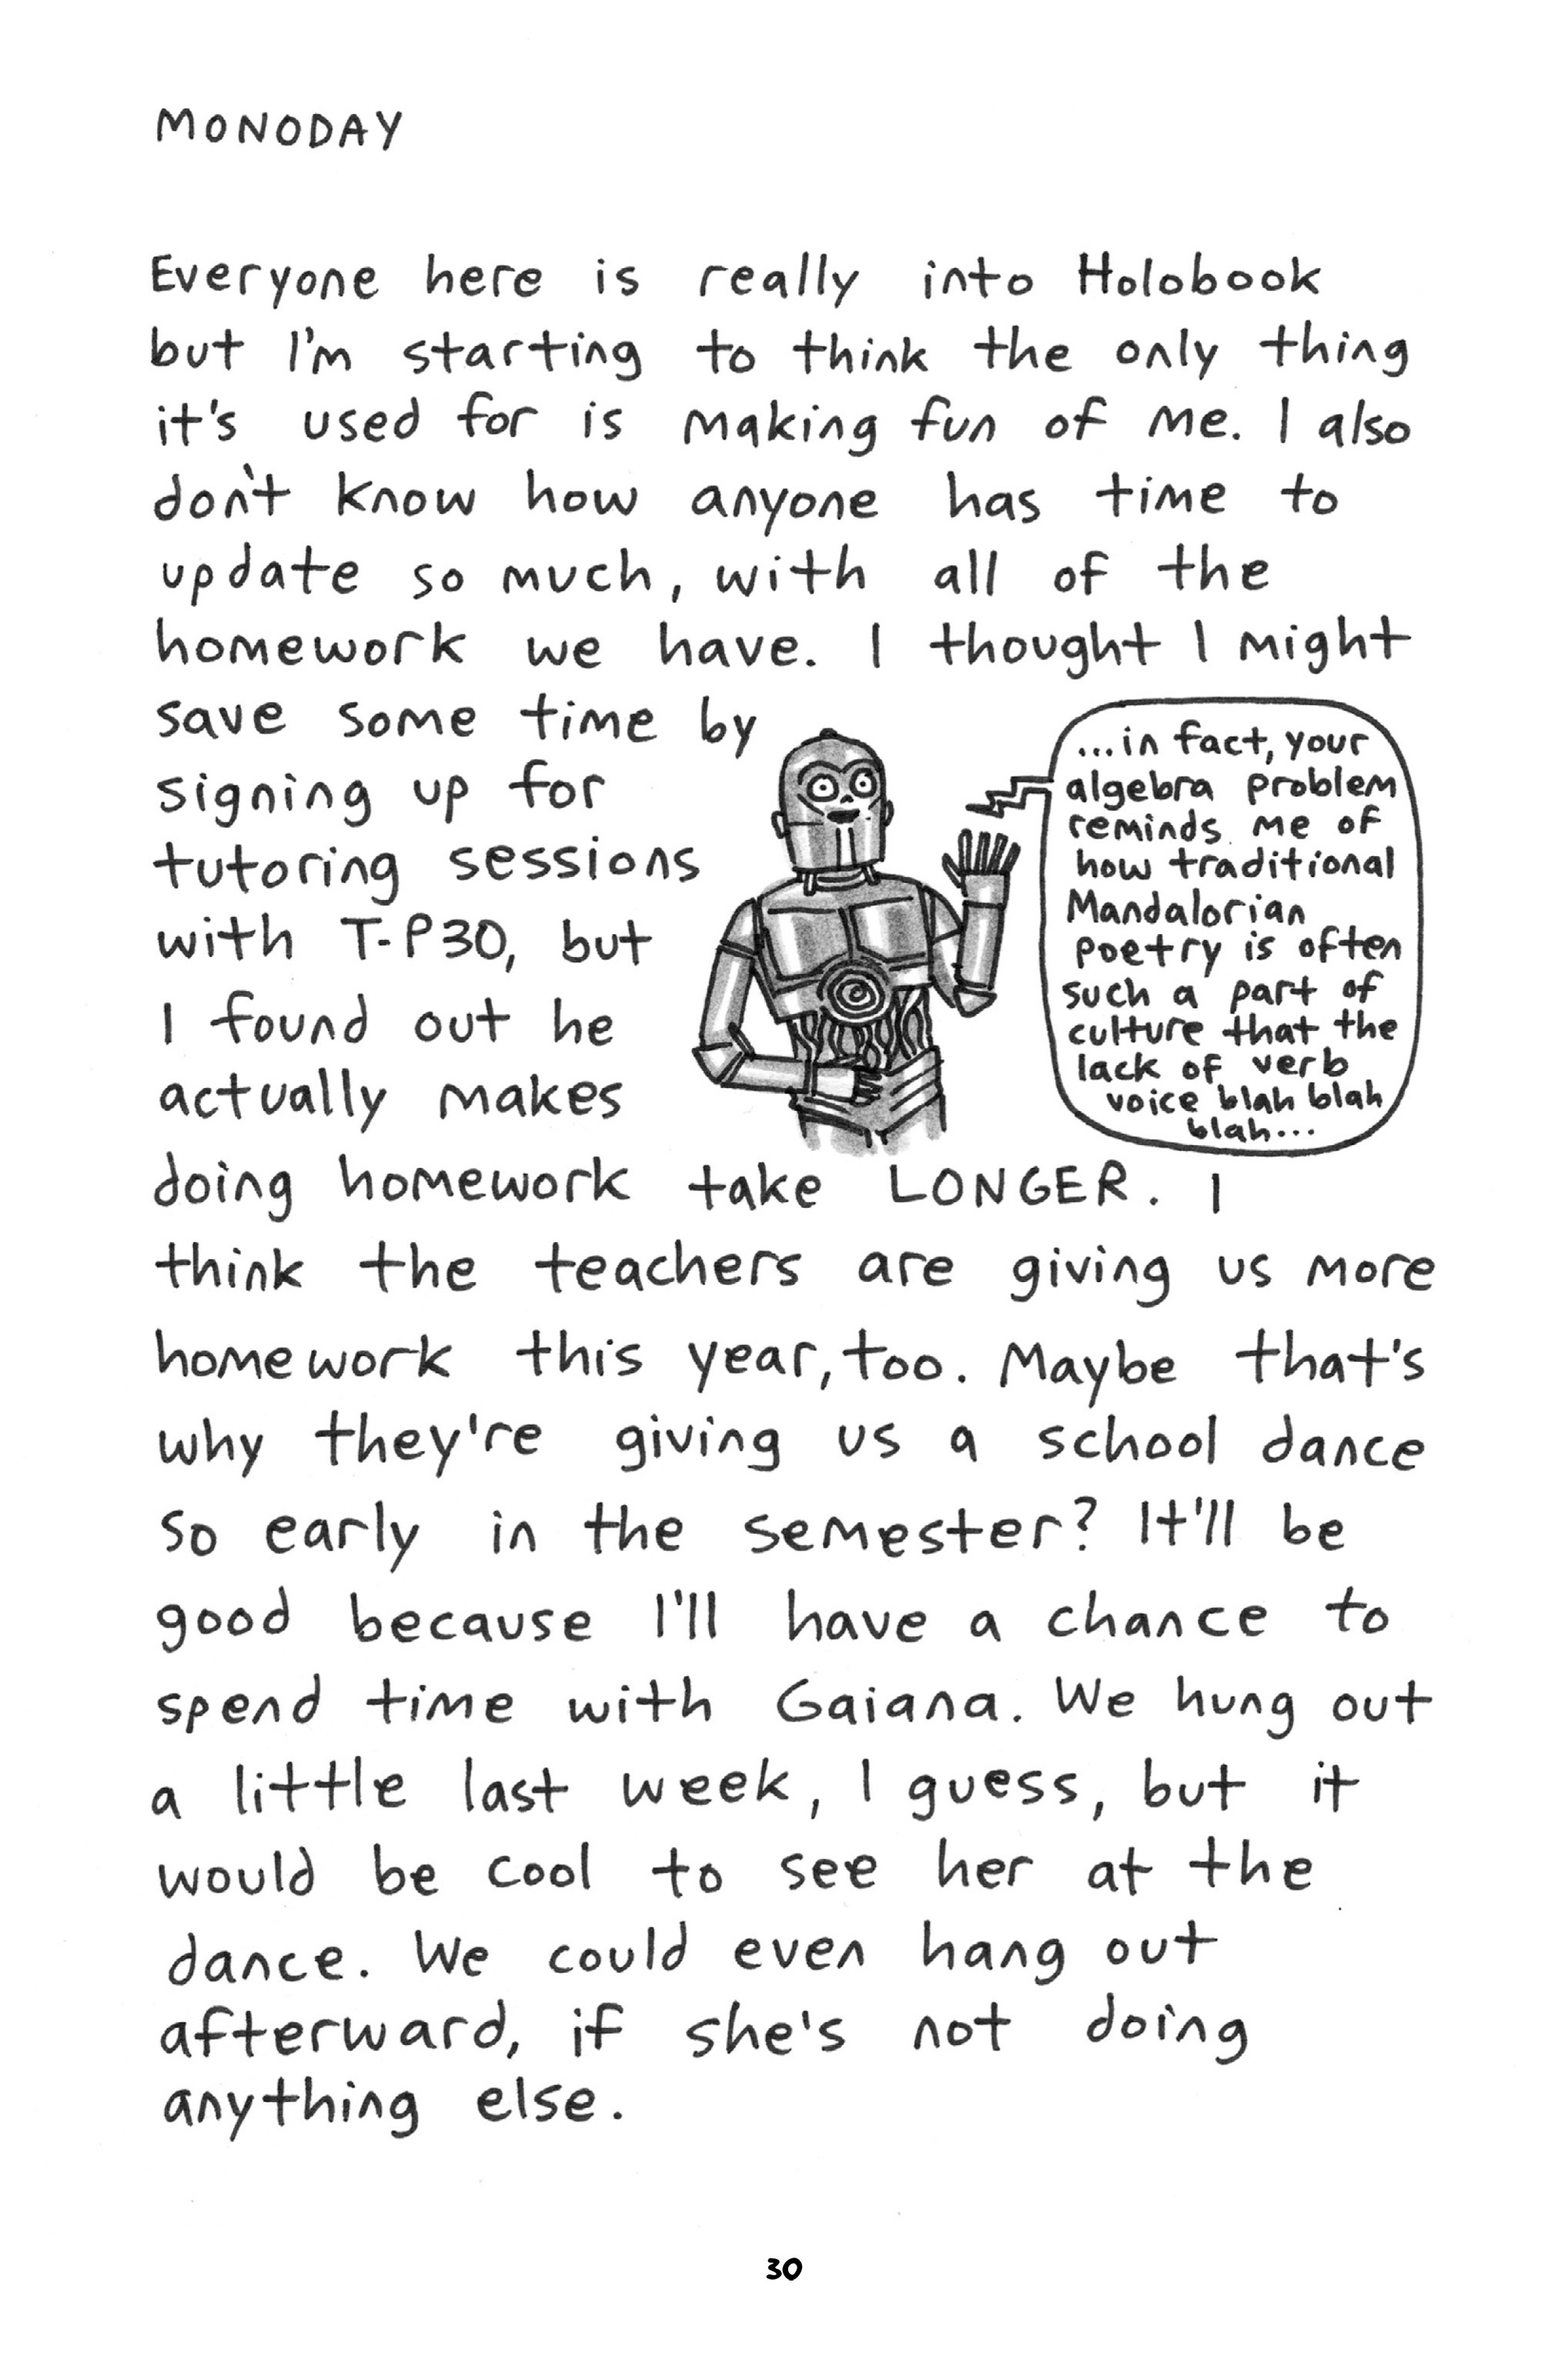 MONODAY
Everyone here is really into Holobook
but I'm starting to think the only thing
it's used for is making fun of me. I also
don't know how anyone has time to
update so much, with all of the
homework we have. I thought I might
save some time by
signing up for
tutoring sessions
with T-P30, but
I found out he
actually makes
...in fact, your
algebra problem
reminds me of
how traditional
Mandalorian
poetry is often
such a part of
culture that the
lack of verb
voice blah blah
blah...
doing homework take LONGER. I
think the teachers are giving us more
homework this year, too. Maybe that's
why they're giving us a school dance
so early in the semester? It'll be
good because I'll have a chance to
spend time with Gaiana. We hung out
a little last week, I guess, but it
would be cool to see her at the
dance. We could even hang out
afterward, if she's not doing
anything else.
30